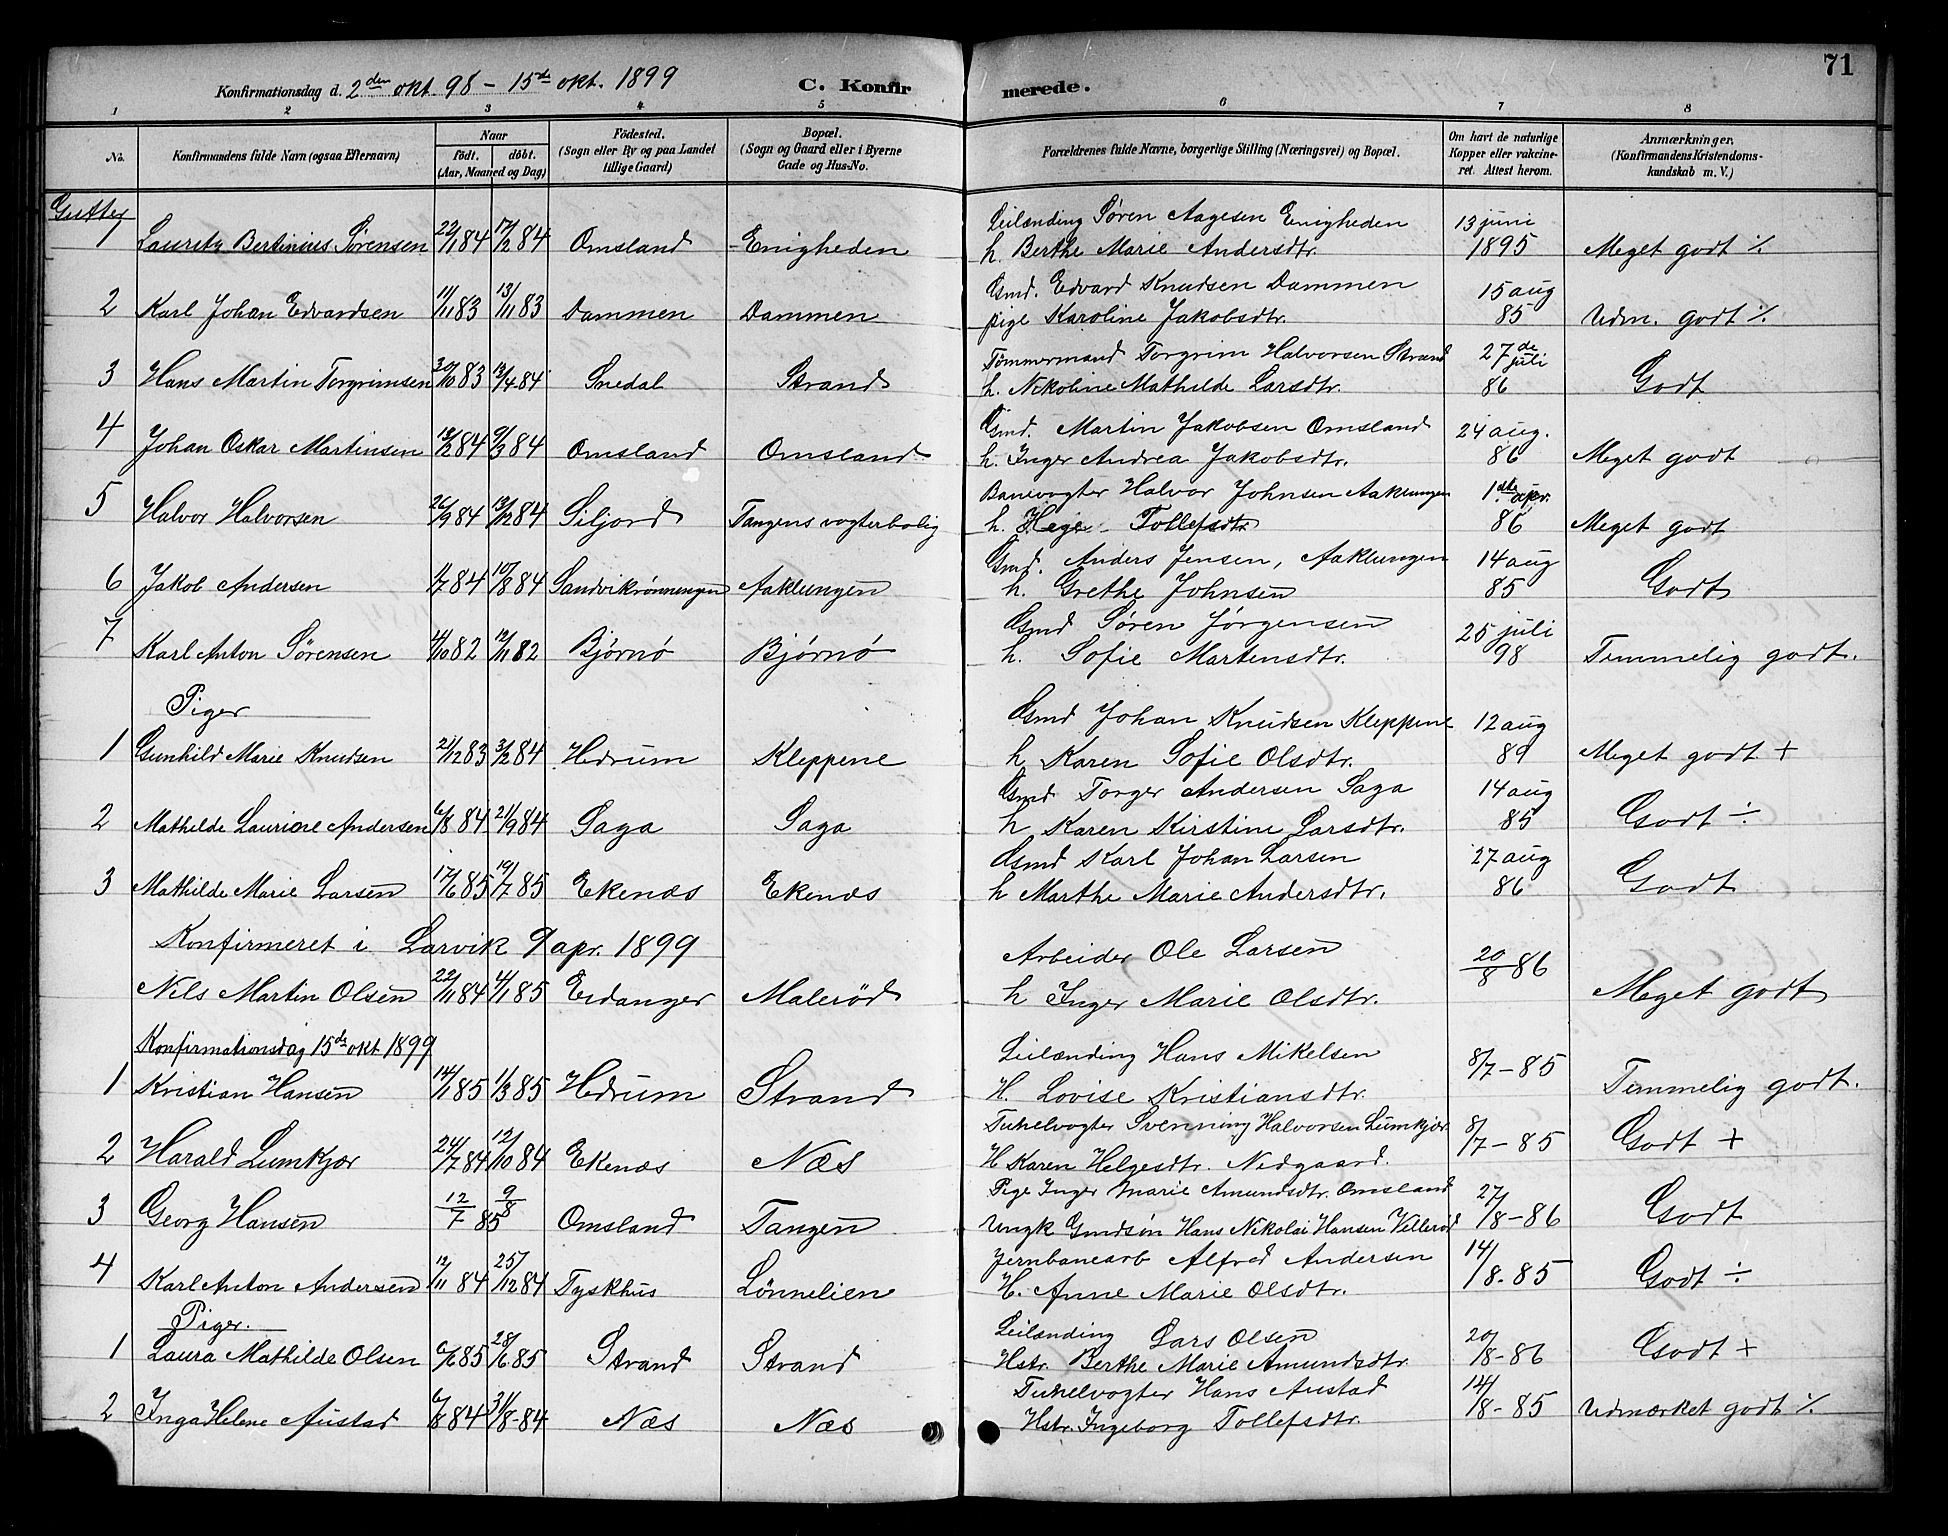 71
Konfirmationsdag d. 2den okt. 98 - 15de okt. 1899 C. Konfirmerede.
1 2 3 4 5 6 7 8
No. Konfirmandens fulde Navn (ogsaa Efternavn) Naar født. døbt. (Aar, Maaned og Dag) Fødested. (Sogn eller By og paa Landet tillige Gaard) Bopæl. (Sogn og Gaard eller i Byerne Gade og Hus-No. Forældrenes fulde Navne, borgerlige Stilling (Næringsvei) og Bopæl. Om havt de naturlige Kopper eller vakcineret. Attest herom. Anmærkninger. (Konfirmandens Kristendomskundskab m. V.)
Gutter
1 Lauritz Bertinius Sørensen 22/1 84 17/2 84 Omsland Enigheden Leilænding Søren Aagesen Enigheden 13 juni
h. Berthe Marie Andersdtr. 1895 Meget godt ⁒
2 Karl Johan Edvardsen 11/11 83 13/11 83 Dammen Dammen Gmd. Edvard Knudsen Dammen 15 aug
pige Karoline Jakobsdtr. 85 Udm. godt ⁒
3 Hans Martin Torgrimsen 30/10 83 13/4 84 Snedal Strand Tømmermand Torgrim Halvorsen Strand 27de juli
h. Nikoline Mathilde Larsdtr. 86 Godt
4 Johan Oskar Martinsen 12/2 84 9/3 84 Omsland Omsland Gmd. Martin Jakobsen Omsland 24 aug.
h. Inger Andrea Jakobsdtr. 86 Meget godt
5 Halvor Halvorsen 26/9 84 13/12 84 Siljord Tangens vogterbolig Banevogter Halvor Johnsen Aaklungen 1ste apr.
h. Hege Tollefsdtr 86 Meget godt
6 Jakob Andersen 1/7 84 10/8 84 Sandvikrønningen Aaklungen Gmd. Anders Jensen, Aaklungen 14 aug
h. Grethe Johnsen 85 Godt
7 Karl Anton Sørensen 4/10 82 12/11 82 Bjørnø Bjørnø Gmd Søren Jørgensen 25 juli
h. Sofie Martensdtr. 98 Temmelig godt.
Piger
1 Gunhild Marie Knudsen 21/12 83 3/2 84 Hedrum Kleppene Gmd Johan Knudsen Kleppene 12 aug
h Karen Sofie Olsdtr. 89 Meget godt +
2 Mathilde Laurione Andersen 6/8 84 21/9 84 Saga Saga Gmd. Torger Andersen Saga 14 aug
h Karen Kirstine Larsdtr. 85 Godt ÷
3 Mathilde Marie Larsen 17/6 85 19/7 85 Ekenæs Ekenæs Gmd Karl Johan Larsen 27 aug
h Marthe Marie Andersdtr. 86 Godt
Konfirmeret i Larvik 9 apr. 1899
Nils Martin Olsen 22/11 84 4/1 85 Eidanger Malerød Arbeider Ole Larsen 20/8 86
h Inger Marie Olsdtr. Meget godt
Konfirmationsdag 15de okt 1899
1 Kristian Hansen 14/1 85 1/3 85 Hedrum Strand Leilænding Hans Mikelsen 8/7 - 85
H. Lovise Kristiansdtr. Temmelig godt.
2 Harald Lumkjær 24/7 84 12/10 84 Ekenæs Næs Tunelvogter Svenning Halvorsen Lumkjær 8/7 - 85 Godt +
H Karen Helgesdtr. Nedgaard.
3 Georg Hansen 12/7 85 9/8 Omsland Tangen Pige Inger Marie Amundsdtr. Omsland 27/8 - 86 Godt
Ungk Gmdsøn Hans Nikolai Hansen Villerød
4 Karl Anton Andersen 12/11 84 25/12 84 Tyskhus Lønnelien Jernbanearb Alfred Andersen 14/8 - 85 Godt ÷
H. Anne Marie Olsdtr.
Piger.
1 Laura Mathilde Olsen 6/6 85 28/6 85 Strand Strand Leilænding Lars Olsen 20/8 - 86 Godt +
Hstr. Berthe Marie Amundsdtr
2 Inga Helene Austad 6/8 84 31/8 - 84 Næs Næs Tunelvogter Hans Austad 14/8 - 85 Udmærket godt ⁒
Hstr. Ingeborg Tollefsdtr.